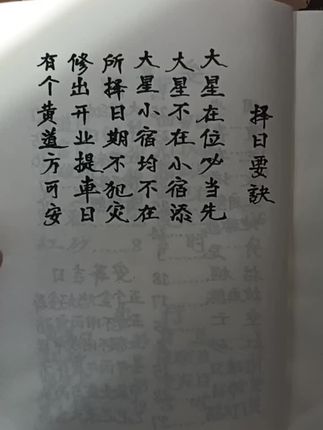 择日要訣
大星在位必当先
大星不在小宿添
大星小宿均不在
所择日期不犯灾
修出开业提車日
有个黄道方可安